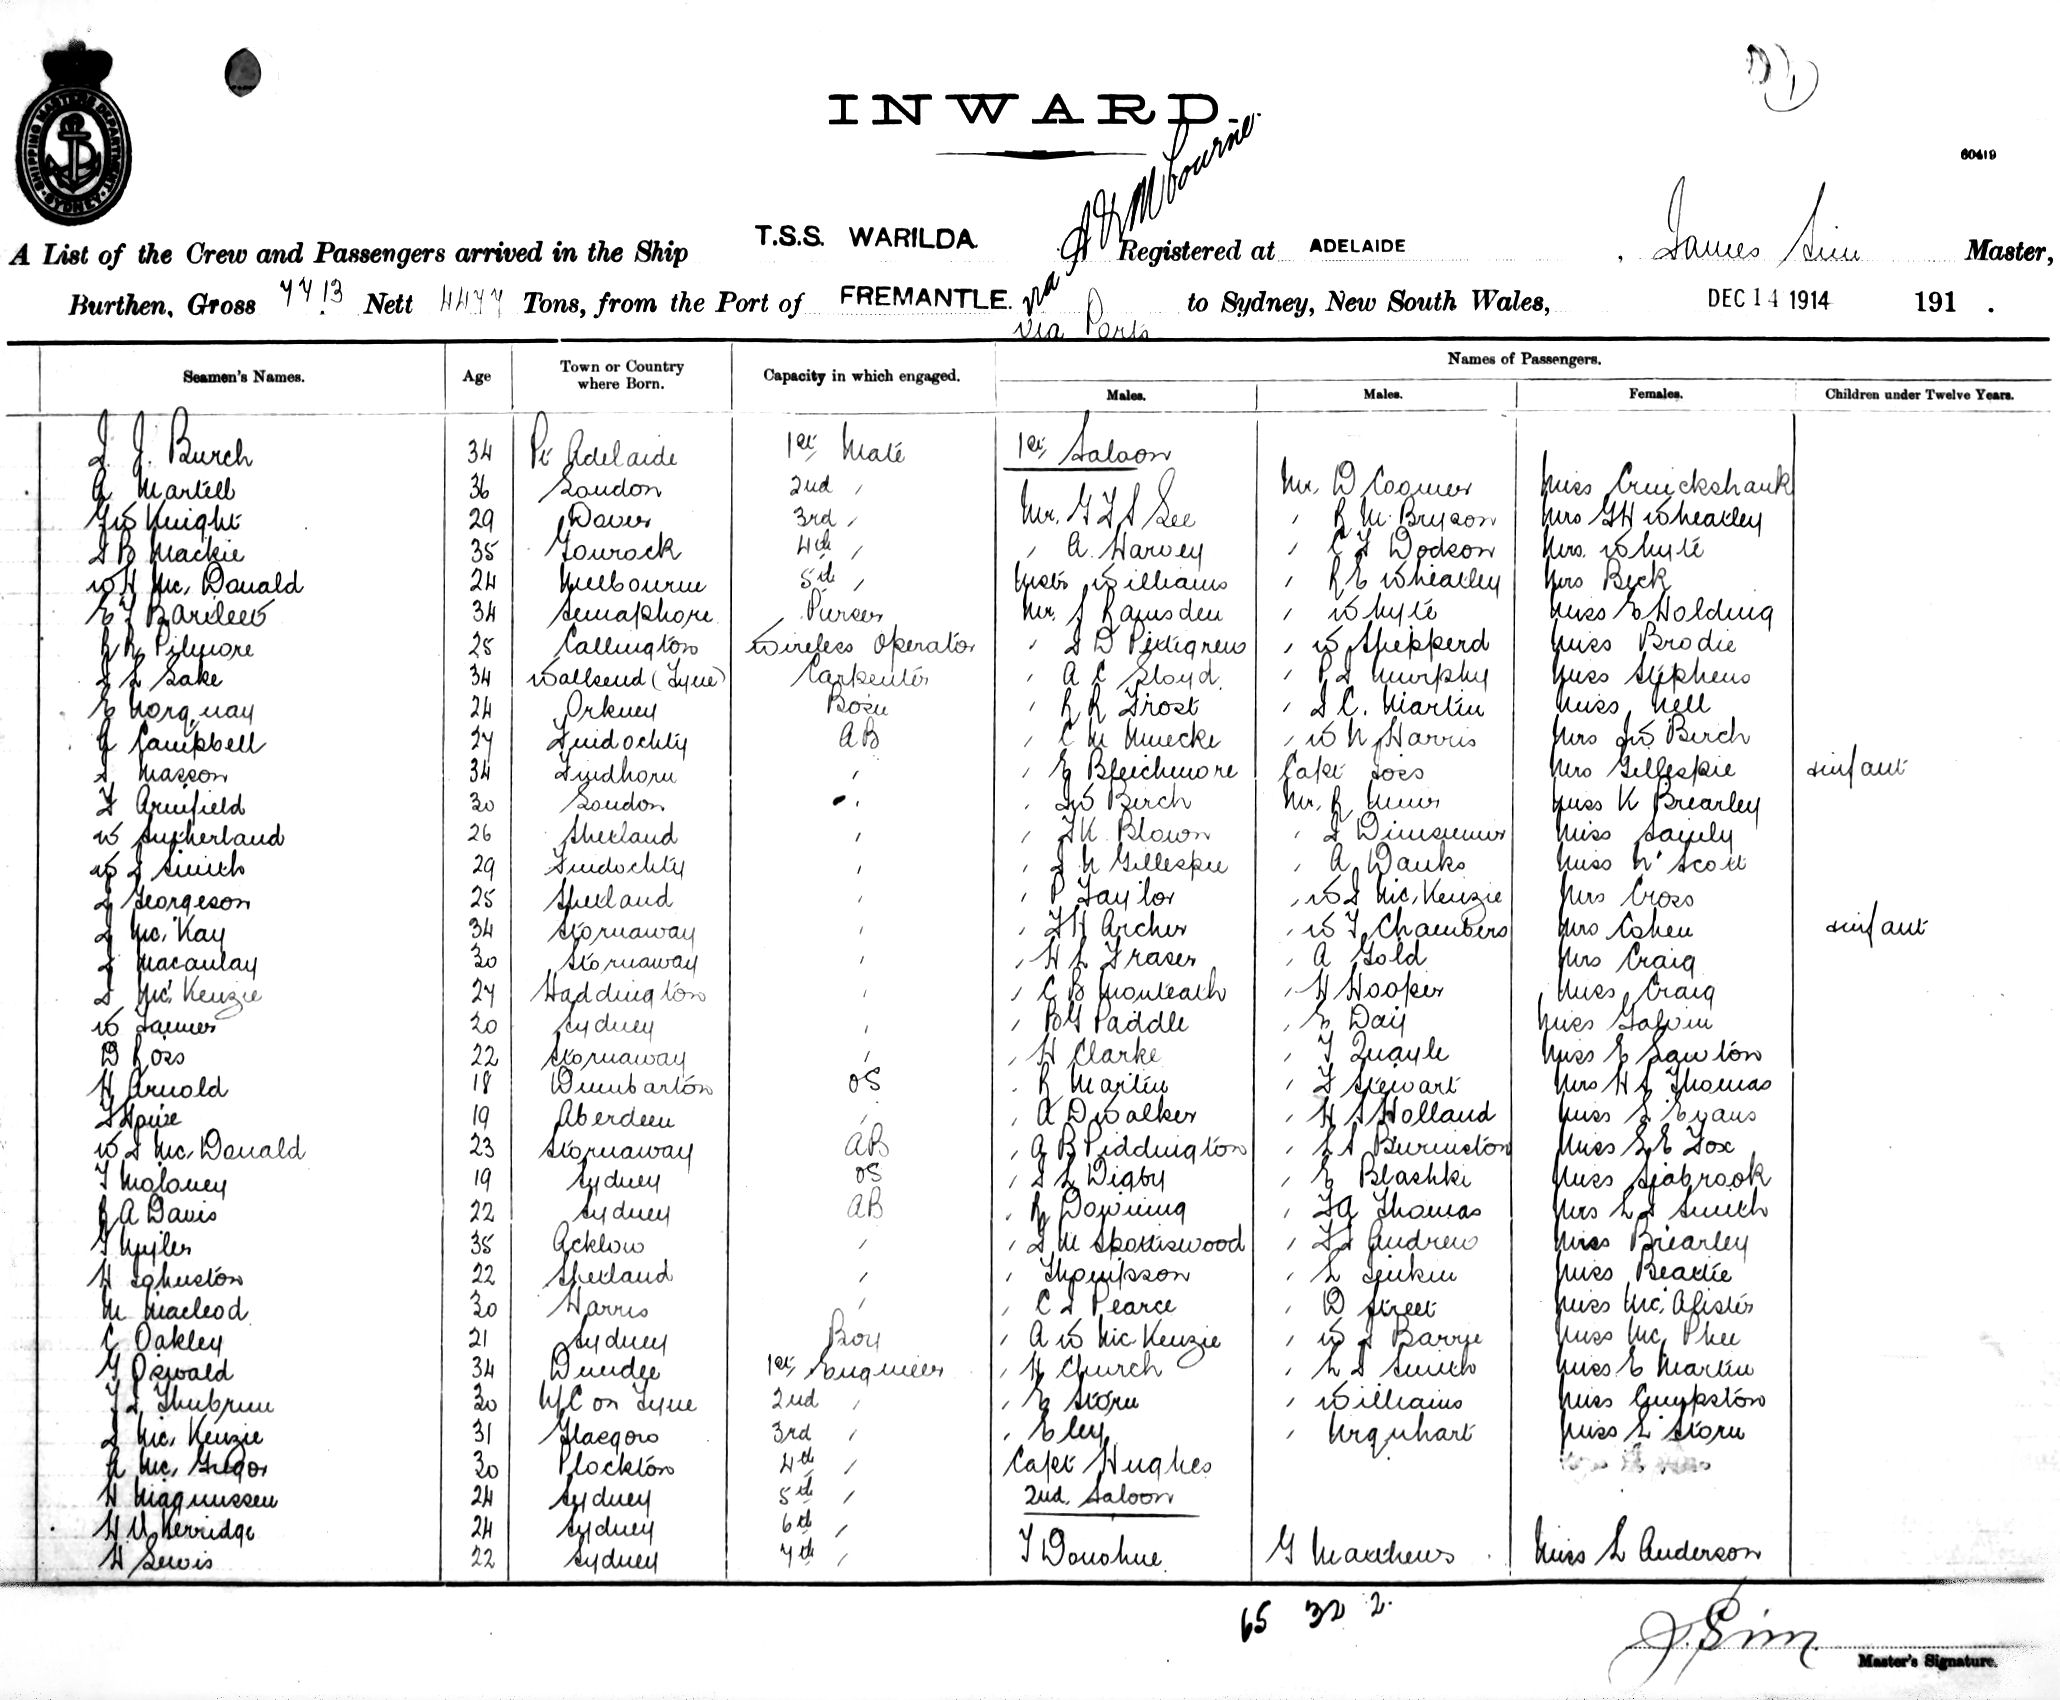 INWARD.
60419
SHIPPING MASTERS DEPARTMENT SYDNEY
A List of the Crew and Passengers arrived in the Ship T.S.S. WARILDA Registered at ADELAIDE, James Sim Master,
Burthen, Gross 7713 Nett 4477 Tons, from the Port of FREMANTLE. via Ports to Sydney, New South Wales, DEC 14 1914 191 .
via Mbourne.
Names of Passengers.
Seamen's Names. Age Town or Country where Born. Capacity in which engaged. Males. Males. Females. Children under Twelve Years.
J. J. Burch 34 Pt Adelaide 1st Mate 1st Saloon
A Martell 36 London 2nd " Mr. D Coomer Miss Cruickshank
G W Knight 29 Dover 3rd " Mr. G F S Lee " R M Bryson Mrs G H Wheatley
J B Mackie 35 Gourock 4th " " A. Harvey " C J Dodson Mrs. Whyte
W H Mc. Donald 24 Melbourne 5th " Williams " R E Wheatley Mrs Beck
E J Bartlett 34 Semaphore Purser Mr. J Ramsden " Whyte Miss E Holding
R R Pilmore 25 Callington Wireless Operator " J D Pedigrew " W Shepperd Miss Brodie
J L Lake 34 Wallsend (Tyne) Carpenter " A C Lloyd " P J Murphy Miss Stephens
E Norquay 24 Orkney Bosn " R R Frost " J C. Martin Miss Nell
G Campbell 27 Findochty AB " C M Muecke " W N Harris Mrs J W Birch
J Masson 34 Findhorn " " E Bleichmore Capt Joss Mrs Gillespie infant
F Armfield 30 London " " J W Birch Mr. R Muir Miss K Brearley
W Sutherland 26 Shetland " " F K Blown " J Dinsmuir Miss
W J Smith 29 Findochty " " J N Gillespie " A Danks Miss N Scott
J Georgeson 25 Shetland " " P Taylor " W J Mc. Kenzie Mrs Cross
J Mc. Kay 34 Stornaway " " F H Archer " W J Chambers Mrs Cohen infant
J Macaulay 30 Stornaway " " H L Fraser " A Gold Mrs Craig
J Mc. Kenzie 27 Haddington " " C B Monteath " H Hooper Miss Craig
W 20 Sydney " " B G Paddle " E Day Miss Galvin
D Ross 22 Stornaway " " H Clarke " J Quayle Miss E Lawton
H Arnold 18 Dumbarton OS " R Martin " J Stewart Mrs H L Thomas
19 Aberdeen " " A D Walker " H S Holland Miss E Evans
W J Mc. Donald 23 Stornaway AB " A B Piddington " L S Burniston Miss L E Fox
T Moloney 19 Sydney OS " J L Digby " E Blashki Miss Seabrook
R A Davis 22 Sydney AB " R Downing " F A Thomas Mrs L J Smith
T Myler 35 Acklow " " J M Spottiswood " F J Andrew Miss Brearley
H Johnston 22 Shetland " " Thompson " L Jenkin Miss Beattie
M Macleod 30 Harris " " C J Pearce " D Street Miss Mc. Alister
C Oakley 21 Sydney Boy " A W Mc Kenzie " W J Barrye Miss Mc. Phee
G Oswald 34 Dundee 1st Engineer " H Church " L J Smith Miss E Martin
T J Thubrun 30 N/C on Tyne 2nd " " E Storn " Williams Miss Gumpston
J Mc. Kenzie 31 Glasgow 3rd " " Eley " Urquhart Miss L Storn
A Mc. Gregor 30 Plockton 4th " Capt Hughes
H Magnussen 24 Sydney 5th " 2nd. Saloon
H V Kerridge 24 Sydney 6th "
H Lewis 22 Sydney 7th " J Donohue G Matthews Miss L Anderson
65 32 2.
J. Sim
Master's Signature.